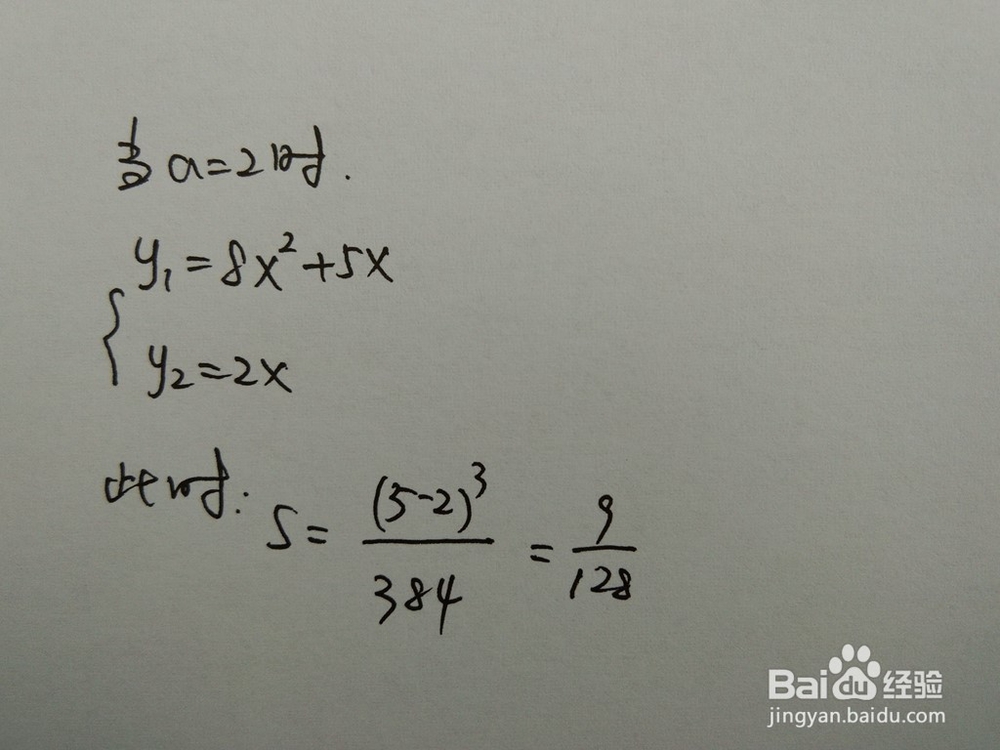 当a=2时.
y₁=8x²+5x
{
y₂=2x
此时: S= (5-2)³/384 = 9/128
Baidu经验
jingyan.baidu.com